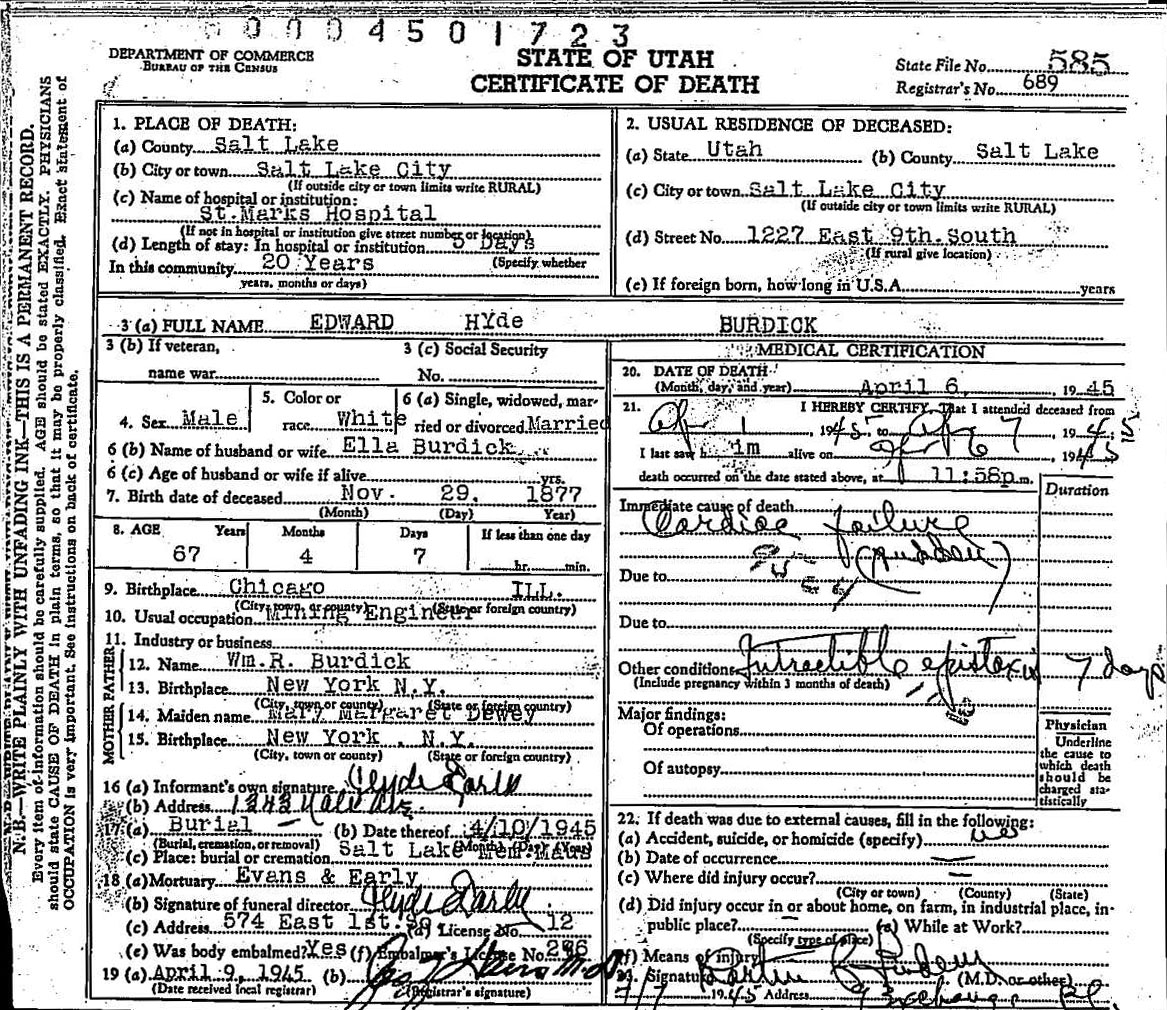 0004501723
DEPARTMENT OF COMMERCE
BUREAU OF THE CENSUS
STATE OF UTAH
CERTIFICATE OF DEATH
State File No. 585
Registrar's No. 689
N.B.—WRITE PLAINLY WITH UNFADING INK—THIS IS A PERMANENT RECORD.
Every item of information should be carefully supplied. AGE should be stated EXACTLY. PHYSICIANS
should state CAUSE OF DEATH in plain terms, so that it may be properly classified. Exact statement of
OCCUPATION is very important. See instructions on back of certificate.
1. PLACE OF DEATH:
(a) County Salt Lake
(b) City or town Salt Lake City
(If outside city or town limits write RURAL)
(c) Name of hospital or institution:
St.Marks Hospital
(If not in hospital or institution give street number or location)
(d) Length of stay: In hospital or institution Days
(Specify whether
In this community 20 Years
years, months or days)
2. USUAL RESIDENCE OF DECEASED:
(a) State Utah (b) County Salt Lake
(c) City or town Salt Lake City
(If outside city or town limits write RURAL)
(d) Street No. 1227 East 9th.South
(If rural give location)
(e) If foreign born, how long in U.S.A. years
3 (a) FULL NAME EDWARD HYde BURDICK
3 (b) If veteran,
name war
3 (c) Social Security
No.
4. Sex Male
5. Color or
race White
6 (a) Single, widowed, mar-
ried or divorced Married
6 (b) Name of husband or wife Ella Burdick
6 (c) Age of husband or wife if alive yrs.
7. Birth date of deceased Nov. 29, 1877
(Month) (Day) Year)
8. AGE Years Months Days If less than one day
67 4 7 hr. min.
9. Birthplace Chicago ILL.
(City, town, or county) (State or foreign country)
10. Usual occupation Mining Engineer
11. Industry or business
FATHER
12. Name Wm.R. Burdick
13. Birthplace New York N.Y.
(City, town or county) (State or foreign country)
MOTHER
14. Maiden name Mary Margaret Dewey
15. Birthplace New York , N.Y.
(City, town or county) (State or foreign country)
16 (a) Informant's own signature Clyde Early
(b) Address 1343 Yale Ave.
17 (a) Burial (b) Date thereof 4/10/1945
(Burial, cremation, or removal) (Month) (Day) (Year)
(c) Place: burial or cremation Salt Lake Mem.Maus
18 (a) Mortuary Evans & Early
(b) Signature of funeral director Clyde Early
(c) Address 574 East 1st.So (d) License No. 12
(e) Was body embalmed? Yes (f) Embalmer's License No.
19 (a) April 9, 1945 (b)
(Date received local registrar) (Registrar's signature)
MEDICAL CERTIFICATION
20. DATE OF DEATH
(Month, day, and year) April 6, 1945
21. I HEREBY CERTIFY, That I attended deceased from
Ap 1, 1945 to Ap 7, 1945
I last saw h im alive on Ap 6, 1945
death occurred on the date stated above, at 11:58p.m.
Duration
Immediate cause of death
Cardiac failure
(sudden)
Due to
Due to
Other conditions Intractible epistaxis 7 days
(Include pregnancy within 3 months of death)
Major findings:
Of operations
Of autopsy
Physician
Underline
the cause to
which death
should be
charged sta-
tistically
22. If death was due to external causes, fill in the following:
(a) Accident, suicide, or homicide (specify) no
(b) Date of occurrence —
(c) Where did injury occur? —
(City or town) (County) (State)
(d) Did injury occur in or about home, on farm, in industrial place, in-
public place? — (e) While at Work?
(Specify type of place)
(f) Means of injury
23. Signature (M.D. or other)
1945 Address Exchange Pl.